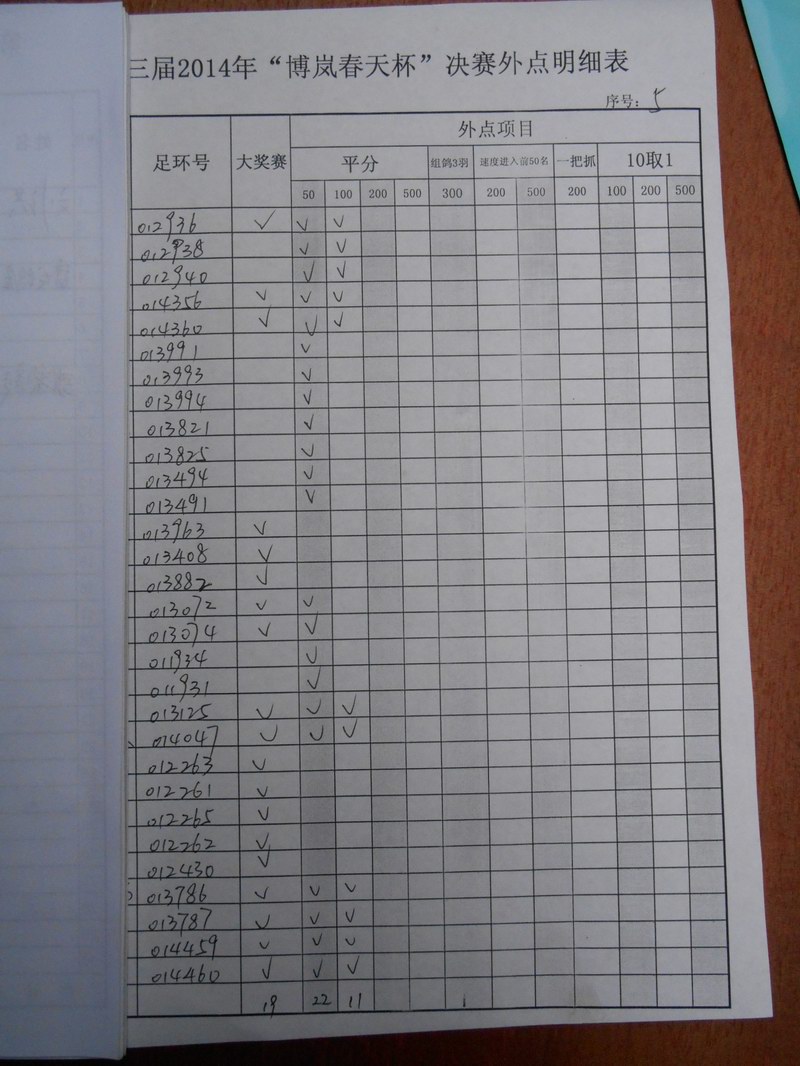 三届2014年“博岚春天杯”决赛外点明细表
序号：5
足环号 大奖赛 外点项目
平分 组鸽3羽 速度进入前50名 一把抓 10取1
50 100 200 500 300 200 500 200 100 200 500
012936 ✓ ✓ ✓
012938 ✓ ✓
012940 ✓ ✓
014356 ✓ ✓ ✓
014360 ✓ ✓ ✓
013991 ✓
013993 ✓
013994 ✓
013821 ✓
013825 ✓
013494 ✓
013491 ✓
013963 ✓
013408 ✓
013882 ✓
013072 ✓ ✓
013074 ✓ ✓
011934 ✓
011931 ✓
013125 ✓ ✓ ✓
014047 ✓ ✓ ✓
012263 ✓
012261 ✓
012265 ✓
012262 ✓
012430 ✓
013786 ✓ ✓ ✓
013787 ✓ ✓ ✓
014459 ✓ ✓ ✓
014460 ✓ ✓ ✓
19 22 11 1